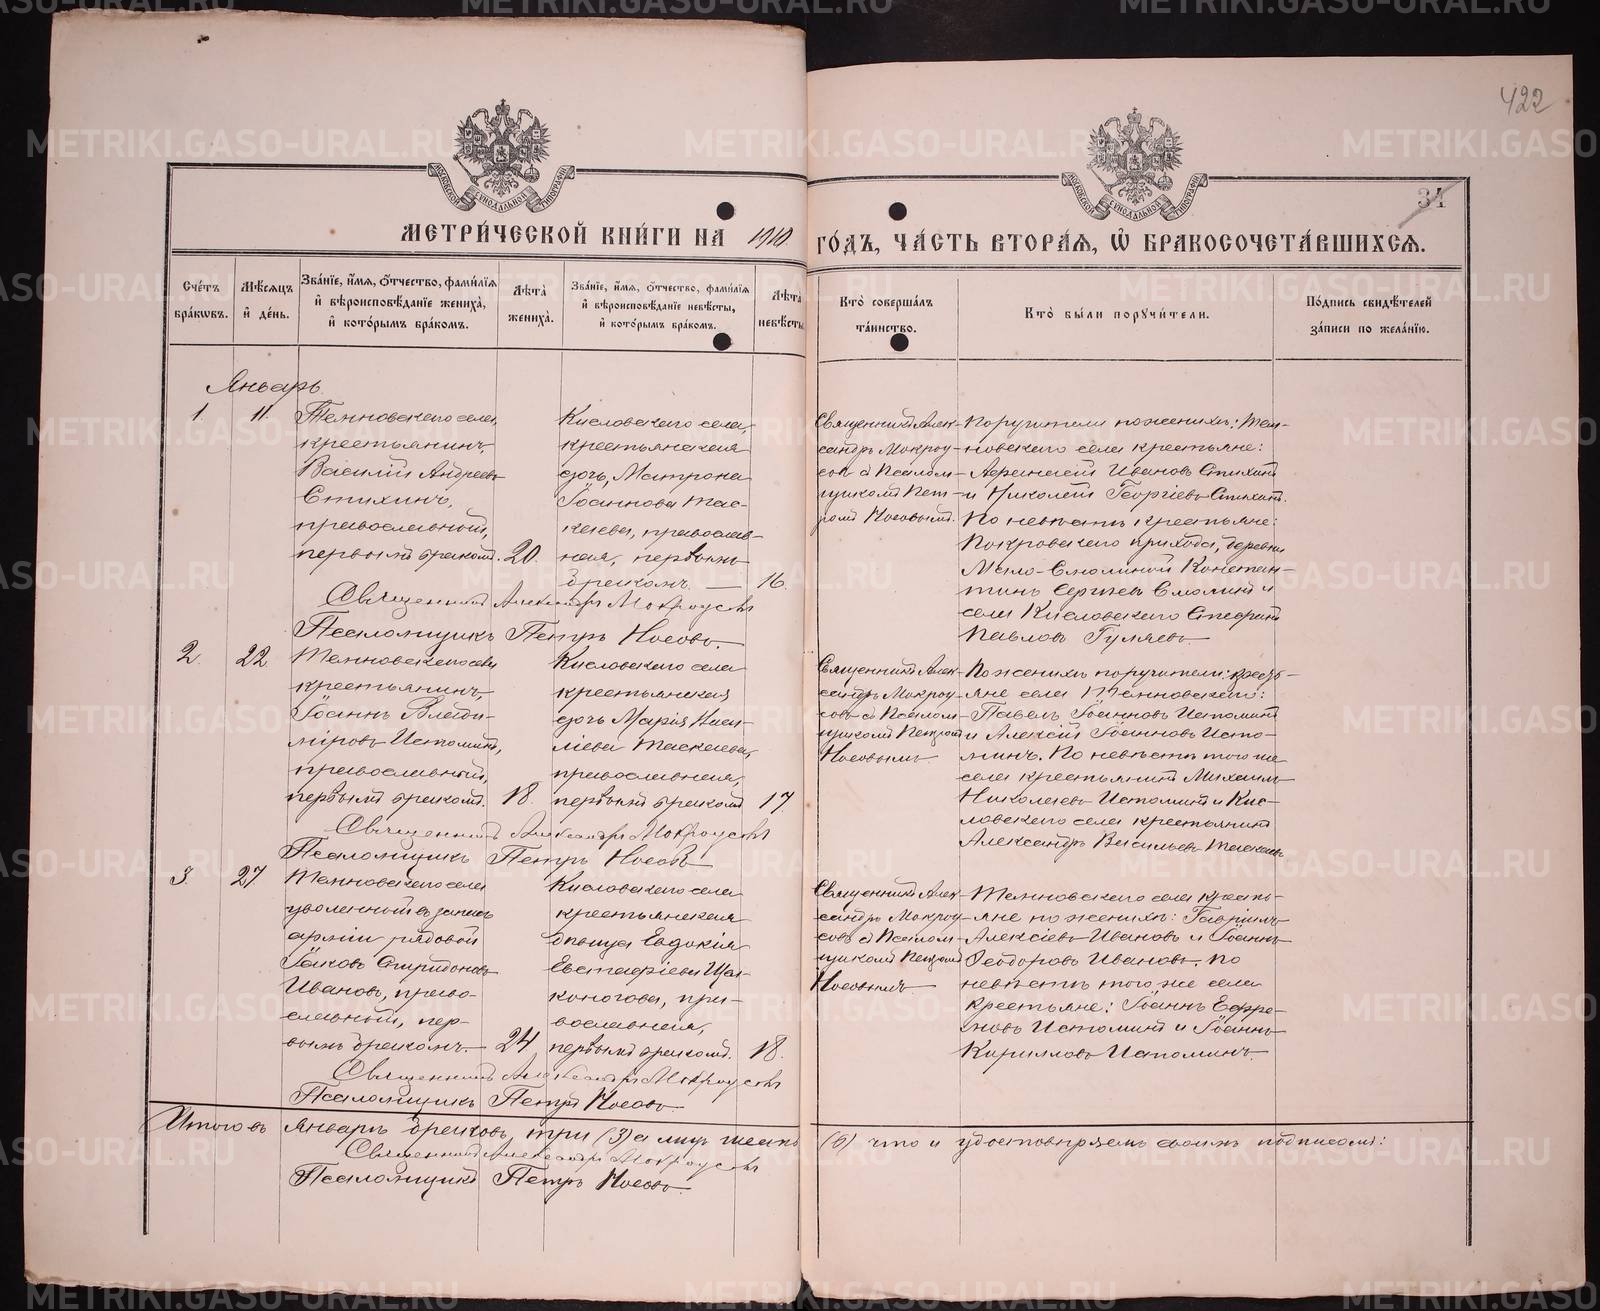 422
34
МОСКОВСКОЙ СѴНОДАЛЬНОЙ ТИПОГРАФІИ
МОСКОВСКОЙ СѴНОДАЛЬНОЙ ТИПОГРАФІИ
МЕТРИ́ЧЕСКОЙ КНИ́ГИ НА 1910 ГО́ДЪ, ЧА́СТЬ ВТОРА́Ѧ, Ѡ҆ БРАКОСОЧЕТА́ВШИХСѦ.
Сче́тъ бра́кѡвъ.
Мѣ́сѧцъ и҆ де́нь.
Зва́нїе, и҆́мѧ, ѻ҆́тчество, фами́лїѧ и҆ вѣроисповѣ́данїе жениха̀, и҆ кото́рымъ бра́комъ.
Лѣ́та жениха̀.
Зва́нїе, и҆́мѧ, ѻ҆́тчество, фами́лїѧ и҆ вѣроисповѣ́данїе невѣ́сты, и҆ кото́рымъ бра́комъ.
Лѣ́та невѣ́сты
Кто̀ соверша́лъ та́инство.
Кто̀ бы́ли порꙋчи́тели.
По́дпись свидѣ́телей за́писи по жела́нїю.
Январь
1. 11.
Темновскаго села,
крестьянинъ,
Василій Андреевъ
Стихинъ,
православный,
первымъ бракомъ. 20.
Кисловскаго села,
крестьянская
дочь, Матрона
Іоаннова Тас-
каева, православ-
ная, первымъ
бракомъ. — 16.
Священникъ Алек-
сандръ Мокроу-
совъ съ Псалом-
щикомъ Пет-
ромъ Носовымъ.
Поручители по женихѣ: Тем-
новскаго села крестьяне:
Иванъ Стихинъ
и Николай Георгіевъ Стихинъ.
По невѣстѣ крестьяне:
Покровскаго прихода, деревни
Мало-Смолиной Констан-
тинъ Сергѣевъ Смолинъ и
села Кисловскаго Стефанъ
Павловъ Гуляевъ.
Священникъ Александръ Мокроусовъ
Псаломщикъ Петръ Носовъ.
2. 22
Темновскаго села
крестьянинъ,
Іоаннъ Влади-
міровъ Истоминъ,
православный,
первымъ бракомъ. 18.
Кисловскаго села
крестьянская
дочь Марія Васи-
ліева Таскаева,
православная,
первымъ бракомъ 17
Священникъ Алек-
сандръ Мокроу-
совъ съ Псалом-
щикомъ Петромъ
Носовымъ.
По женихѣ поручители: кресть-
яне села Темновскаго:
Павелъ Іоанновъ Истоминъ
и Алексій Іоанновъ Исто-
минъ. По невѣстѣ того же
села крестьянинъ Михаилъ
Николаевъ Истоминъ и Кис-
ловскаго села крестьянинъ
Александръ Васильевъ Таскаевъ
Священникъ Александръ Мокроусовъ
Псаломщикъ Петръ Носовъ
3. 27.
Темновскаго села
уволенный въ запасъ
арміи рядовой
Іаковъ Спиридоновъ
Ивановъ, право-
славный, пер-
вымъ бракомъ. 24
Кисловскаго села
крестьянская
дѣвица Евдокія
Евстафіева Щел-
коногова, пра-
вославная,
первымъ бракомъ. 18.
Священникъ Алек-
сандръ Мокроу-
совъ съ Псалом-
щикомъ Петромъ
Носовымъ.
Темновскаго села кресть-
яне по женихѣ: Гавріилъ
Алексіевъ Ивановъ и Іоаннъ
Ѳеодоровъ Ивановъ. По
невѣстѣ того же села
крестьяне: Іоаннъ Ефре-
мовъ Истоминъ и Іоаннъ
Кирилловъ Истоминъ.
Священникъ Александръ Мокроусовъ
Псаломщикъ Петръ Носовъ.
Итого въ Январѣ браковъ три (3) а лицъ шесть (6) что и удостовѣряемъ своимъ подписомъ:
Священникъ Александръ Мокроусовъ
Псаломщикъ Петръ Носовъ.
METRIKI.GASO-URAL.RU